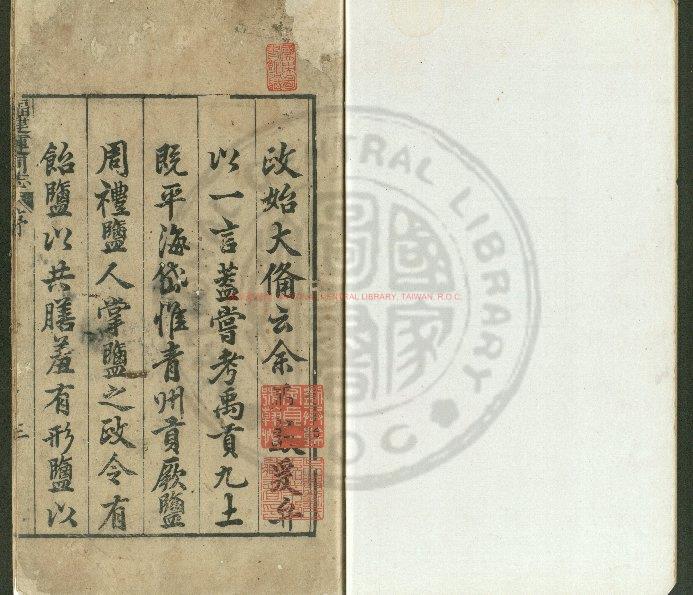 政始大備云余
爰弁
以一言蓋嘗考禹貢九土
既平海岱惟青州貢厥鹽
周禮鹽人掌鹽之政令有
飴鹽以共膳羞有形鹽以
福建運司志
序
三
CENTRAL LIBRARY, TAIWAN, R.O.C.
CENTRAL LIBRARY
R O C